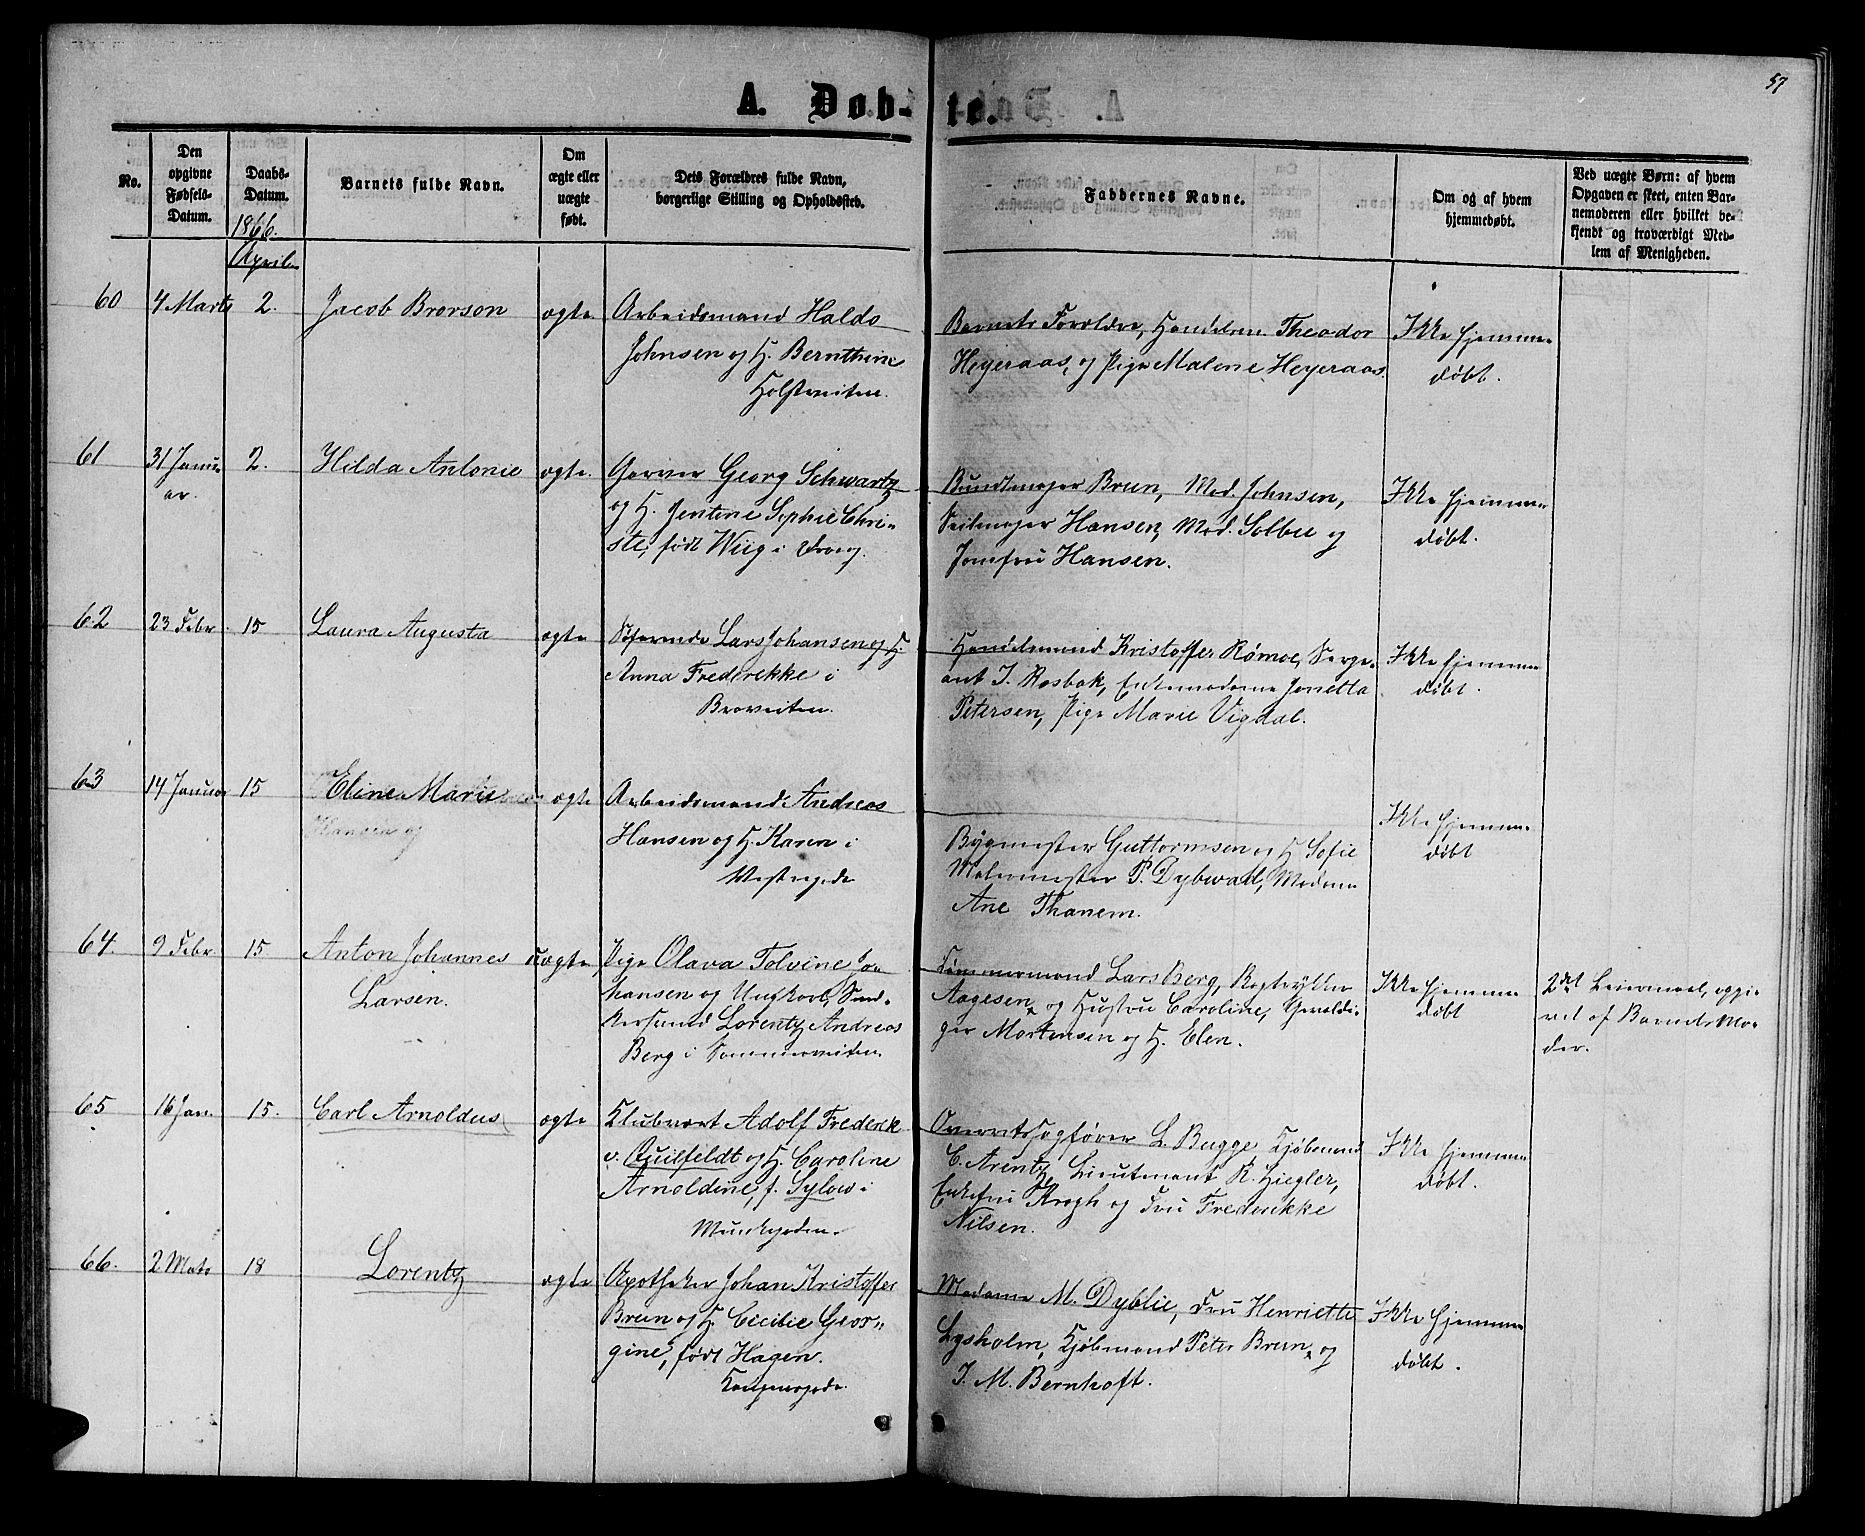 57
A. Døb-te.
No.
Den opgivne Fødsels-Datum.
Daabs-Datum.
Barnets fulde Navn.
Om ægte eller uægte født.
Dets Forældres fulde Navn, borgerlige Stilling og Opholdssted.
Faddernes Navne.
Om og af hvem hjemmedøbt.
Ved uægte Børn: af hvem Opgaven er skeet, enten Barnemoderen eller hvilket bekjendt og troværdigt Medlem af Menigheden.
1866.
April
60 4 Marts 2. Jacob Brorson ægte Arbeidsmand Haldo
Johnsen og H. Bernthine
Holstveiten.
Barnets Forældre, Handelsm. Theodor
Heyeraas, og Pige Malene Heyeraas.
Ikke hjemme-
døbt.
61 31 Janu-
ar. 2. Hilda Antonie ægte. Garver Georg Schwartz
og H. Jentine Sophie Chri-
stie, født Wiig i
Bundtmager Brun, Mad. Johnsen,
Seilmager Hansen, Mad. Solbue og
Jomfru Hansen.
Ikke hjemme-
døbt.
62 23 Febr. 15 Laura Augusta ægte Søfarende Lars Johansen og H.
Anna Frederikke i
Broveiten.
Handelsmand Kristoffer Rømoe, Serge-
ant I. Rosbak, Enkemadame Jonetta
Petersen, Pige Marie Vigdal.
Ikke hjemme-
døbt.
63 14 Januar 15 Eline Marie ægte Arbeidsmand Andreas
Hansen og H. Karen i
Hansen og
Bygmester Guttormsen og H. Sofie
Malermester P. Dybwad, Madam
Ane Thanem.
Ikke hjemme-
døbt
64. 9 Febr. 15. Anton Johannes
Larsen. uægte Pige Olava Tolvine Jo-
hansen og Ungkarl, Sned-
kersvend Lorentz Andreas
Berg i Sommerveiten.
Tømmermand Lars Berg, Bogtrykker
Aagesen, og Hustru Caroline, Gevaldi-
ger Mortensen og H. Elen.
Ikke hjemme-
døbt
2det Leiermaal, opgi-
vet af Barnets Mo-
der.
65 16 Jan. 15. Carl Arnoldus ægte Klubvært Adolf Frederik
v. Quilfeldt og H. Caroline
Arnoldine, f. Sylow i
Munkegaden.
Overretssagfører L. Bugge, Kjøbmand
C. Arentz, Lieutenant R. Ziegler,
Enkefru Krogh og Fru Frederikke
Nilsen.
Ikke hjemme-
døbt.
66. 2 Mats 18 Lorentz ægte Apotheker Johan Kristoffer
Brun og H. Cicilie Geor-
gine, født Hagen.
Kongensgade.
Madame M. Dyblie, Fru Henriette
Lysholm, Kjøbmand Peter Brun, og
I. M. Bernhoft.
Ikke hjemme-
døbt.